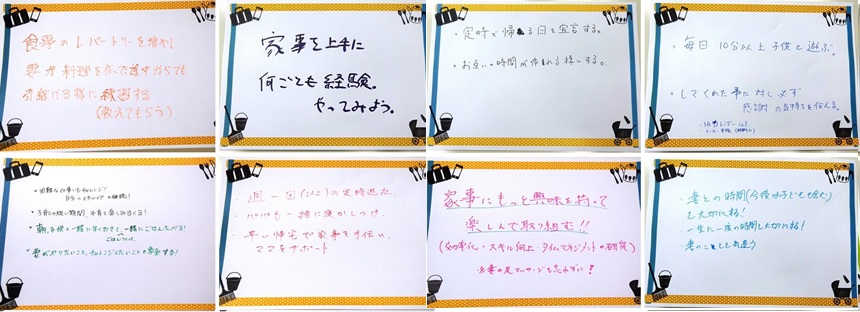 食事のレパートリーを増やし、
妻が料理を作った途中からでも
引継げる様に練習する
(教えてもらう)
家事を上手に
何ごとも経験。
やってみよう。
・定時で帰る日を宣言する。
・お互いの時間が作れる様にする。
・毎日10分以上子供と遊ぶ。
・してくれた事に対し必ず
感謝の気持ちを伝える。
・子育ての短い期間、本音で楽しみまくる!
・朝、子供と一緒に早くおきて、一緒にごはんたべる!
・妻がやりたいこと、チャレンジしたいことの応援する!
・週一回(以上)の定時退社
・パパも一緒に寝かしつけ
・早い帰宅で家事を手伝い、
ママをサポート
家事にもっと興味を持って
楽しんで取り組む!!
(効率化・スキル向上・タイムマネジメントの研究)
・妻の足マッサージも忘れずに!
・妻との時間(今後は子どもも含む)
も大切にする!
・一生に一度の時間も大切にする!
・妻のことも気遣う